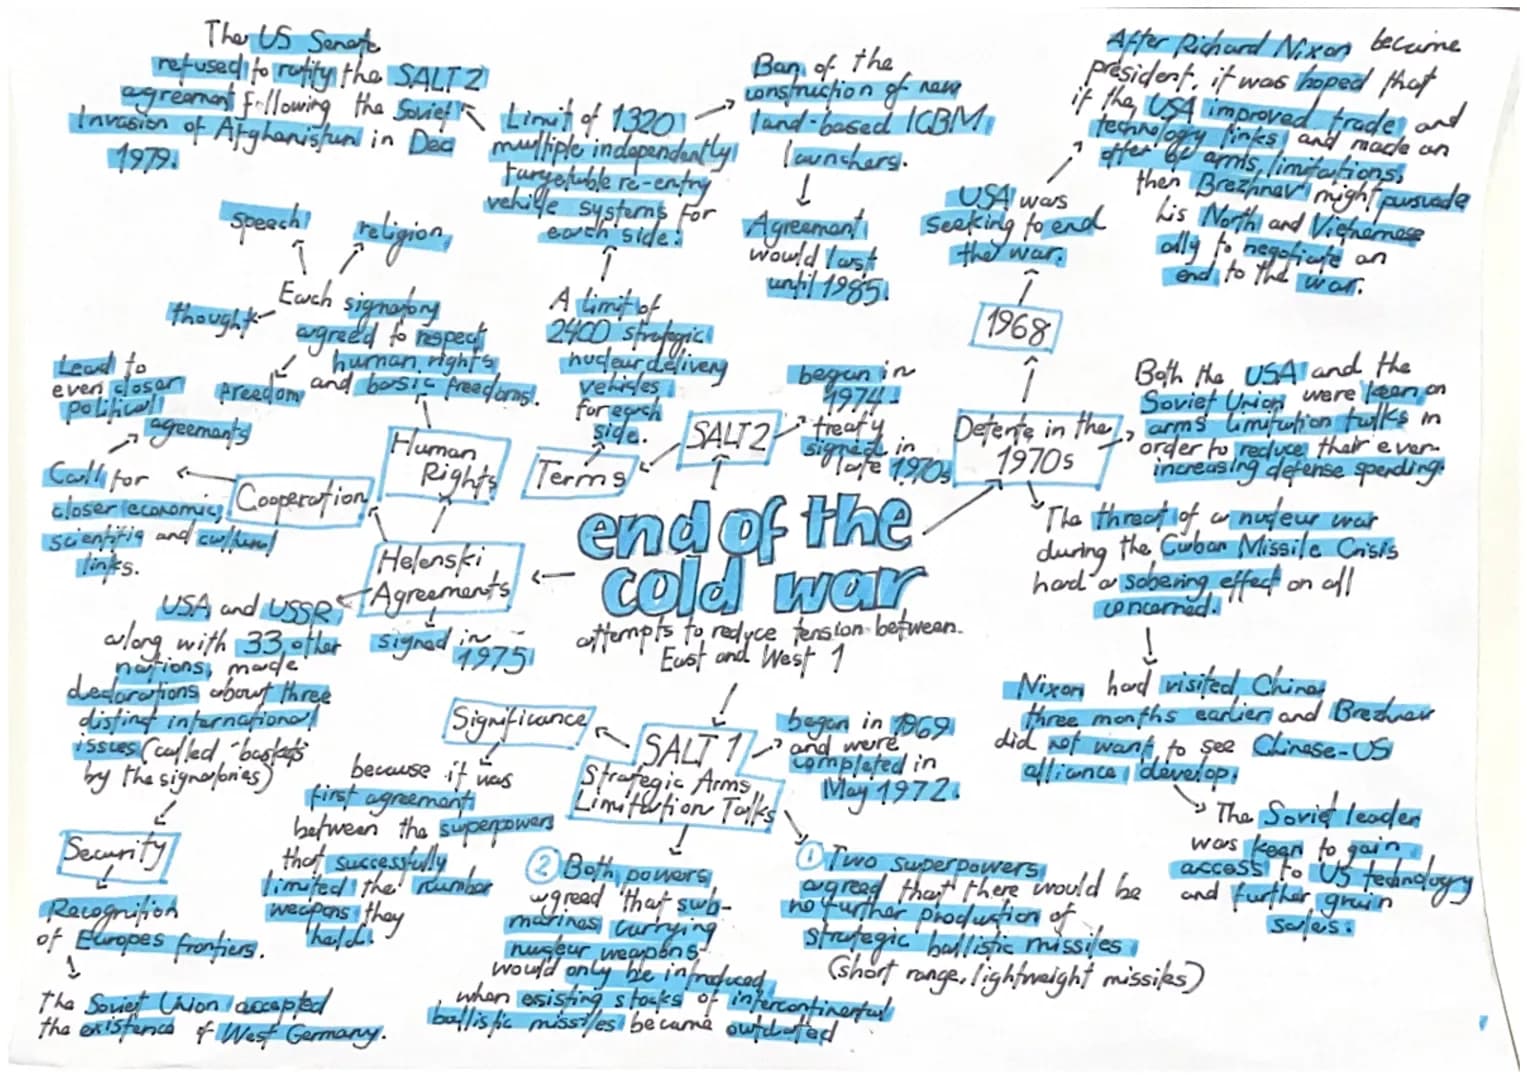 end of the
cold war
attempts to reduce tension between
East and West 1
The US Senate
refused to ratify the SALT 2
agreement following the Soviet
Invasion of Afghanistan in Dec
1979.
Limit of 1320
multiple independently
targetable re-entry
vehicle systems for
each side.
Ban of the
construction of new
land-based ICBM
launchers.
Agreement
would last
until 1985.
A limit of
2400 strategic
nuclear delivery
vehicles
for each
side.
Terms
SALT 2
began in
1974
treaty
signed in
late 1970s
After Richard Nixon became
president, it was hoped that
if the USA improved trade and
technology links and made an
offer of arms limitations,
then Brezhnev might pursuade
his North and Vietnamese
ally to negotiate an
end to the war.
USA was
seeking to end
the war.
1968
Detente in the
1970s
Both the USA and the
Soviet Union were keen on
arms limitation talks in
order to reduce their ever-
increasing defense spending.
The threat of a nuclear war
during the Cuban Missile Crisis
had a sobering effect on all
concerned.
Nixon had visited China
three months earlier and Brezhnev
did not want to see Chinese-US
alliance develop.
The Soviet leader
was keen to gain
access to US technology
and further grain
sales.
speech
religion
thought
freedom
Each signatory
agreed to respect
human rights
and basic freedoms.
Human
Rights
Lead to
even closer
political
agreements
Call for
closer economic,
scientific and cultural
links.
Cooperation
Helenski
Agreements
signed in
1975
USA and USSR
along with 33 other
nations, made
declarations about three
distinct international
issues (called "baskets"
by the signatories)
Security
Recognition
of Europes frontiers.
the Soviet Union accepted
the existence of West Germany.
Significance
because it was
first agreement
between the superpowers
that successfully
limited the number
weapons they
held.
SALT 1
Strategic Arms
Limitation Talks
began in 1969
and were
completed in
May 1972.
1 Two superpowers
agreed that there would be
no further production of
strategic ballistic missiles
(short range, lightweight missiles)
2 Both powers
agreed that sub-
marines carrying
nuclear weapons
would only be introduced
when existing stocks of intercontinental
ballistic missiles became outdated